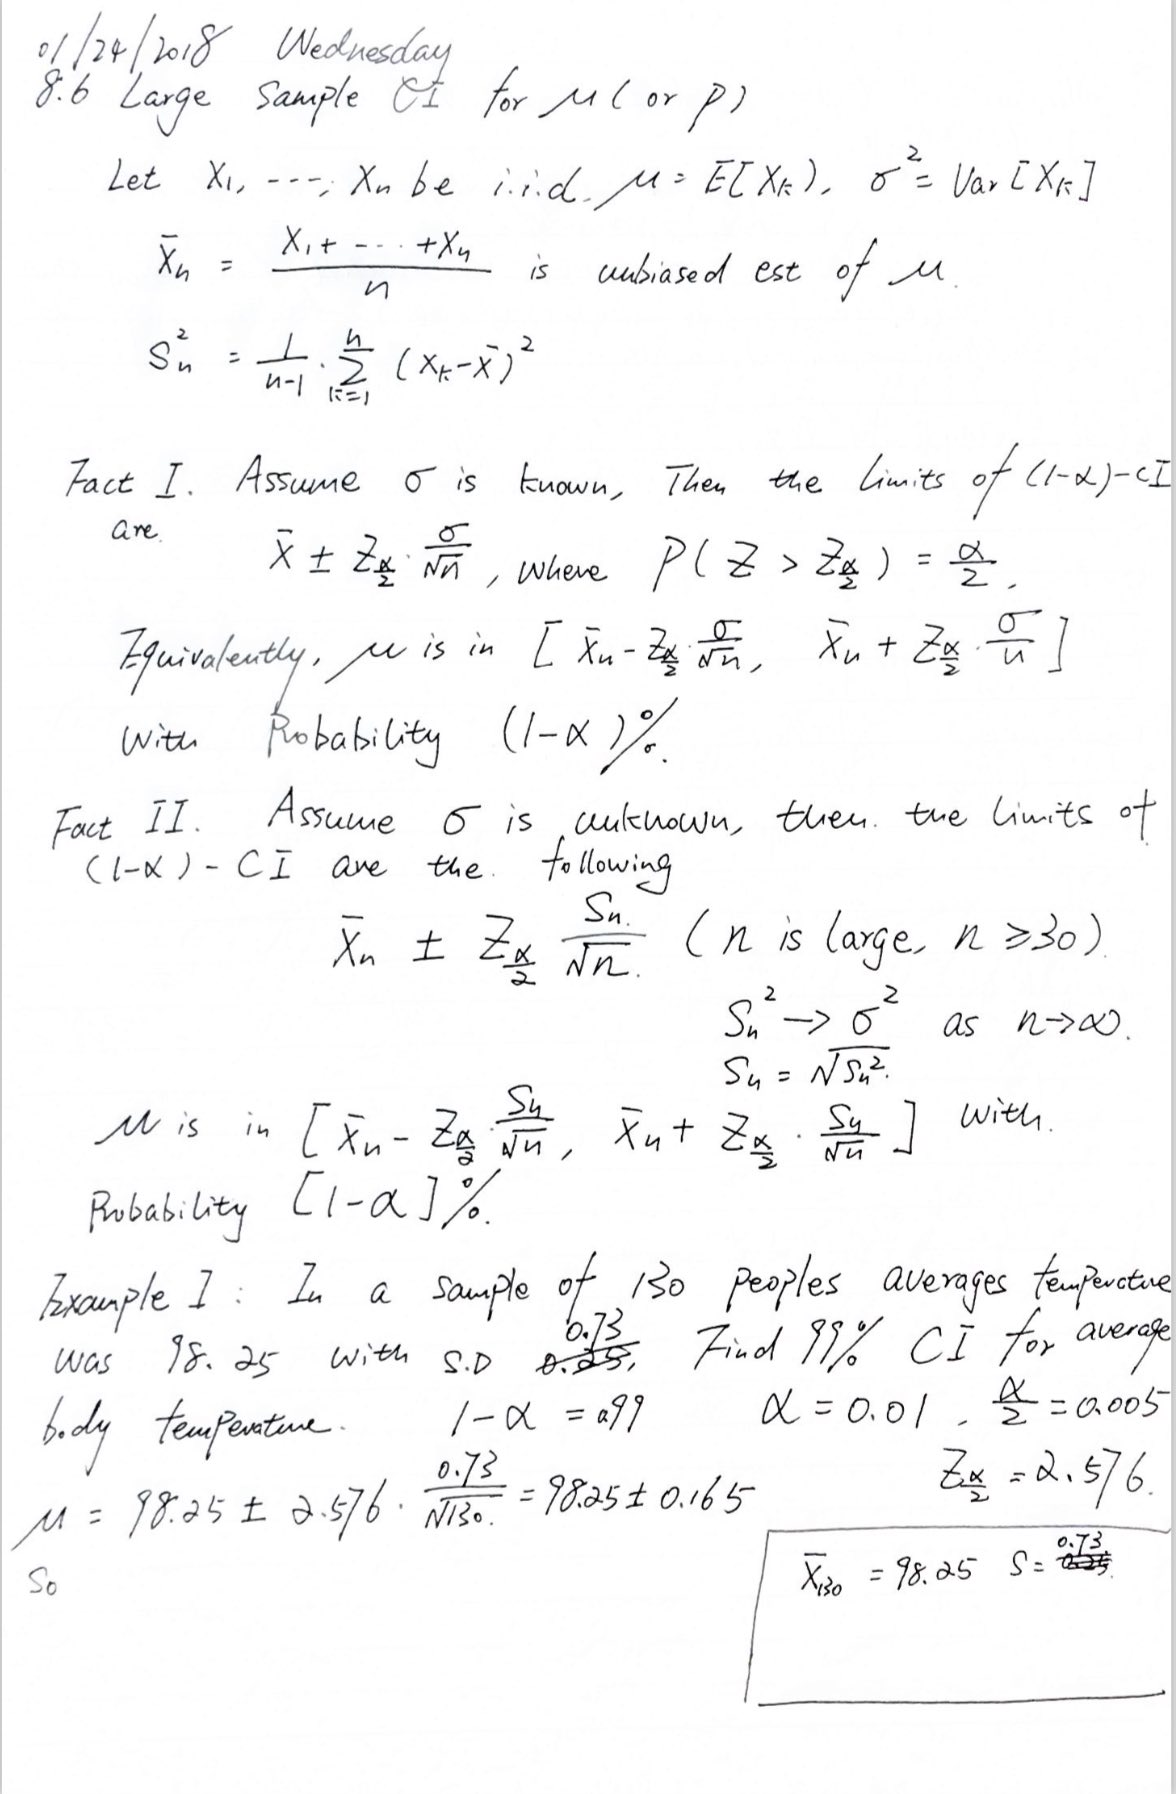 01/24/2018 Wednesday
8.6 Large Sample CI for μ (or p)
Let X₁, ---, Xₙ be i.i.d. μ = E[Xₖ), σ² = Var[Xₖ]
X̄ₙ = (X₁ + --- + Xₙ)/n is unbiased est of μ.
Sₙ² = 1/(n-1) · Σₖ₌₁ⁿ (Xₖ - X̄)²
Fact I. Assume σ is known, Then the limits of (1-α)-CI
are.
X̄ ± Z_{α/2} · σ/√n, where P(Z > Z_{α/2}) = α/2.
Equivalently, μ is in [X̄ₙ - Z_{α/2} · σ/√n, X̄ₙ + Z_{α/2} · σ/n]
With Probability (1-α)%.
Fact II. Assume σ is unknown, then. the limits of
(1-α)-CI are the. following
X̄ₙ ± Z_{α/2} Sₙ/√n. (n is large, n ≥ 30).
Sₙ² → σ² as n→∞.
Sₙ = √Sₙ².
μ is in [X̄ₙ - Z_{α/2} · Sₙ/√n, X̄ₙ + Z_{α/2} · Sₙ/√n] with.
Probability [1-α]%.
Example I: In a sample of 130 peoples averages temperature
was 98.25 with S.D 0.73 Find 99% CI for average
body temperature. 1-α = 0.99 α = 0.01, α/2 = 0.005
Z_{α/2} = 2.576.
μ = 98.25 ± 2.576 · 0.73/√130. = 98.25 ± 0.165
X̄₁₃₀ = 98.25 S = 0.73.
So